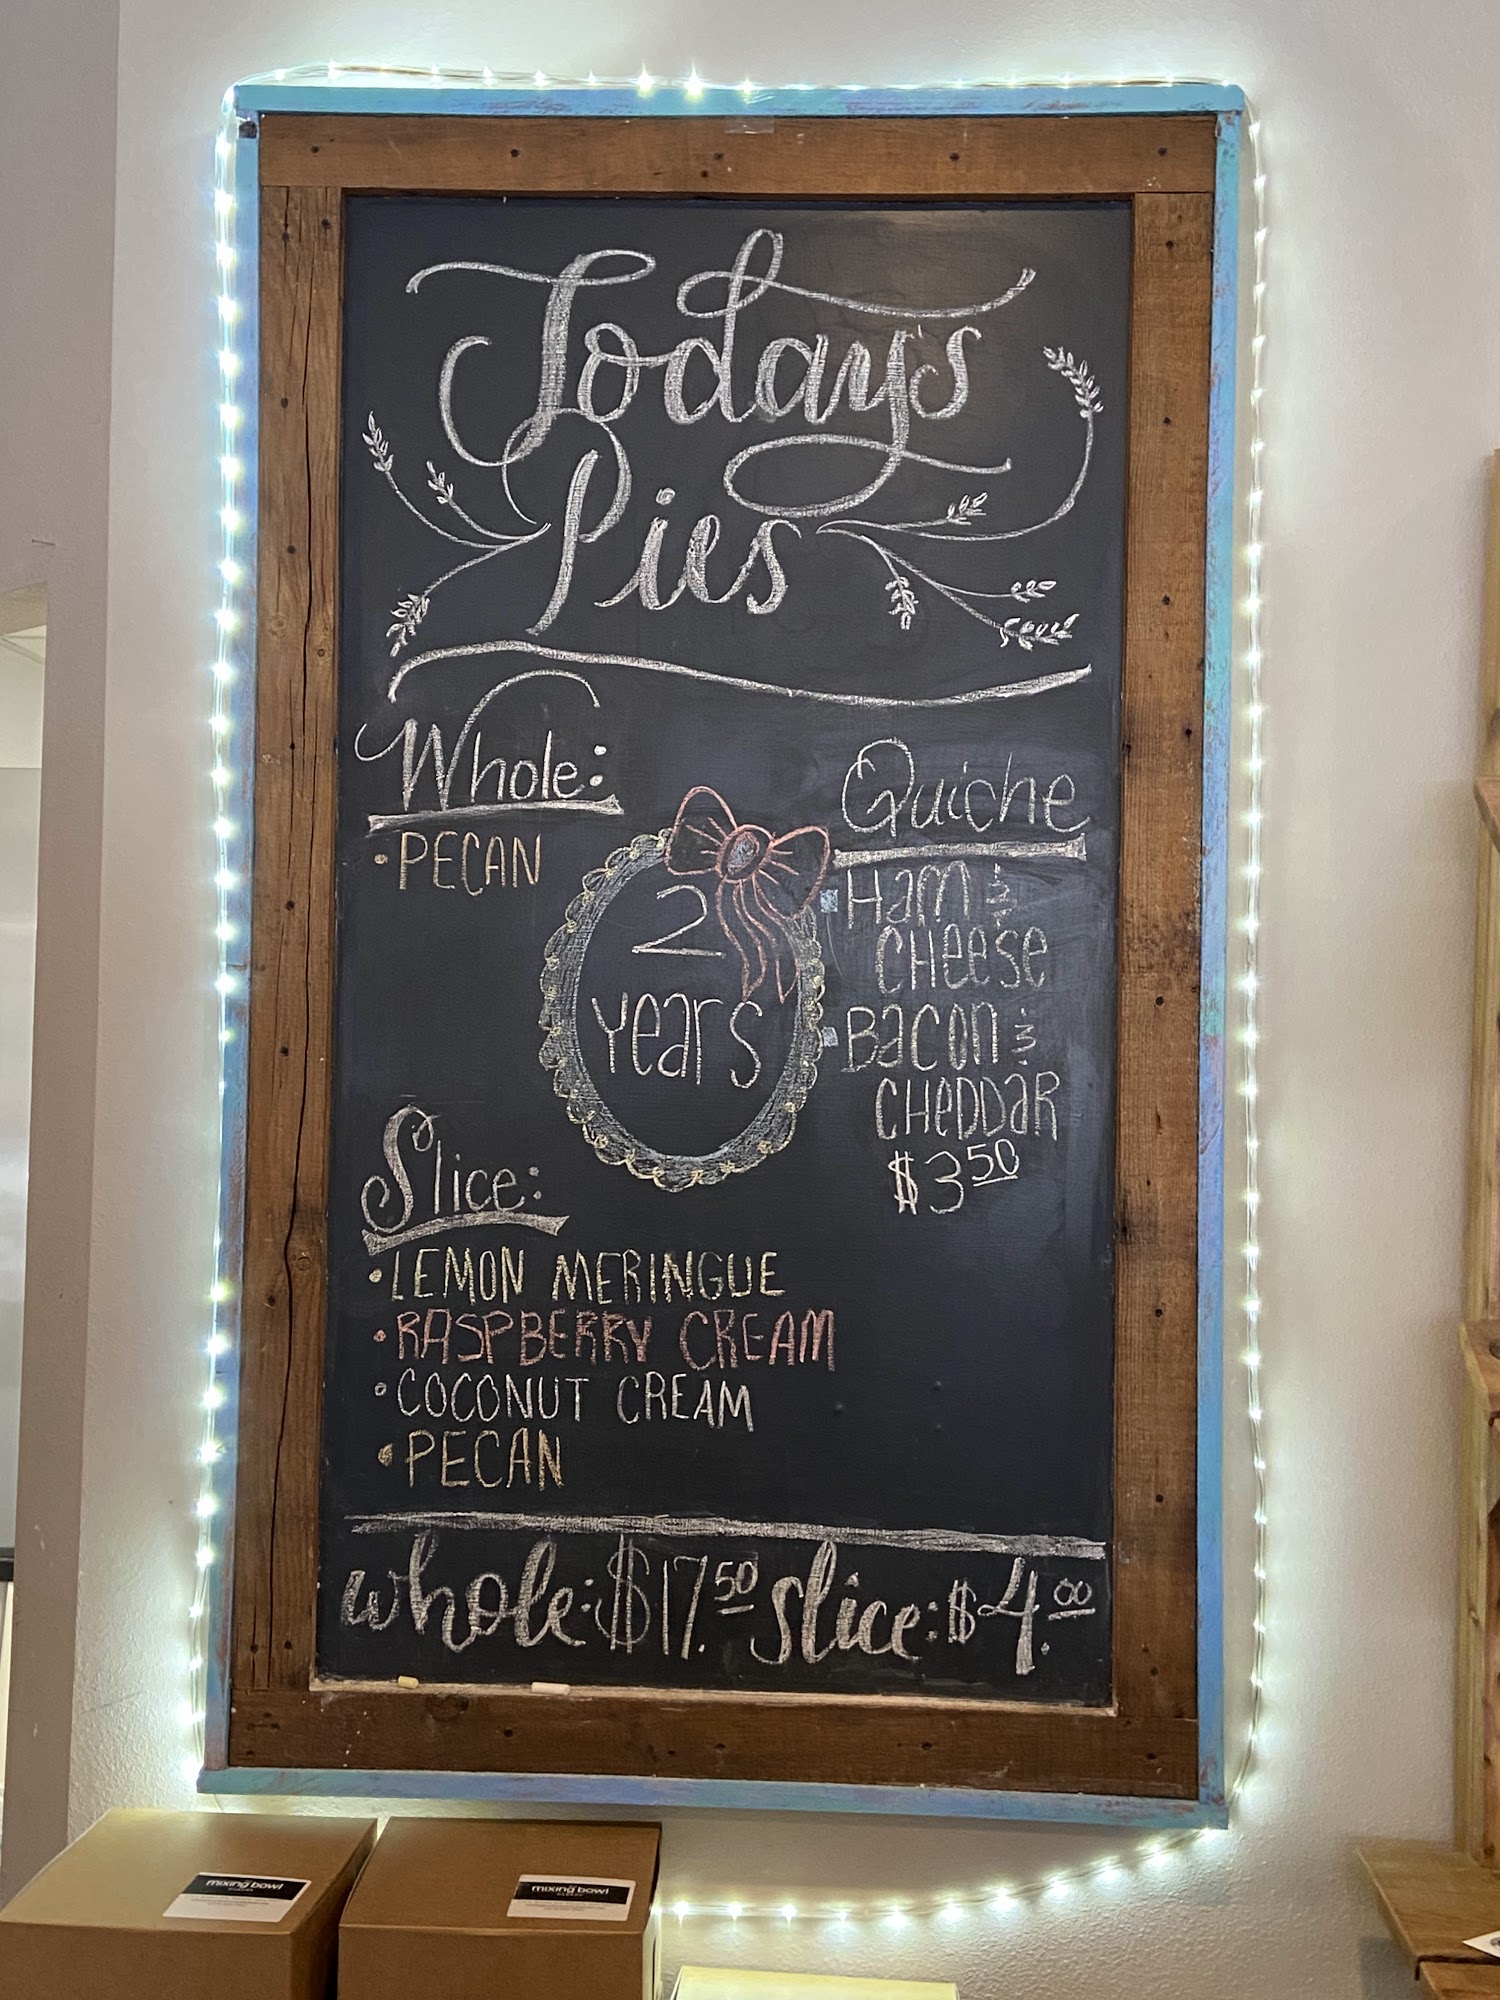 Today's
Pies
Whole:
• PECAN
2
years
Quiche
Ham &
CHeese
Bacon &
CHeDDaR
$3 50
Slice:
• LEMON MERINGUE
• RASPBERRY CREAM
• COCONUT CREAM
• PECAN
whole: $17.50 slice: $4.00
mixing bowl
mixing bowl